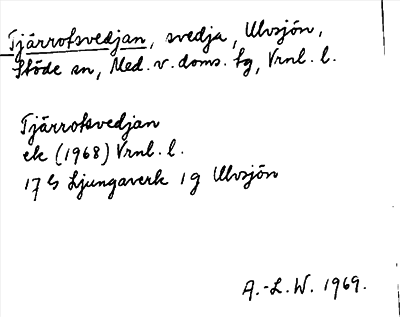 Tjärrotsvedjan, svedja, Ulvsjön,
Stöde sn, Med. v. doms. tg, Vrnl. l.
Tjärrotsvedjan
ek (1968) Vrnl. l.
17 G Ljungaverk 1 g Ulvsjön
A.-L. W. 1969.